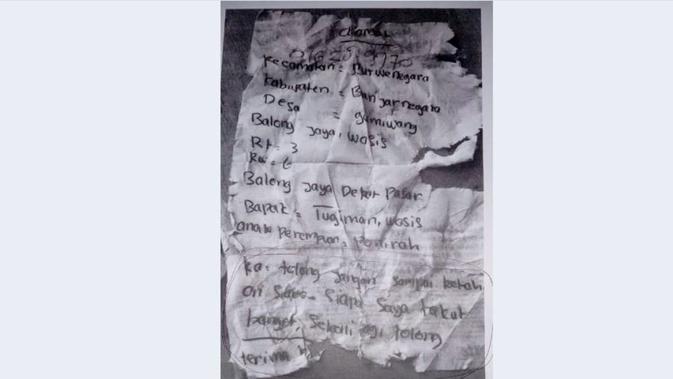 alamat
Kecamatan = Purwonegara
Kabupaten = Banjarnegara
Desa = gumiwang
Balong jaya, wasis
Rt = 3
Rw = 6
Balong Jaya Dekat Pasar
Bapak = Tugiman, wasis
anak Perempuan = 
Ka: tolong jangan sampai
Siapa Saya takut
banget, Sekali lagi tolong
terima